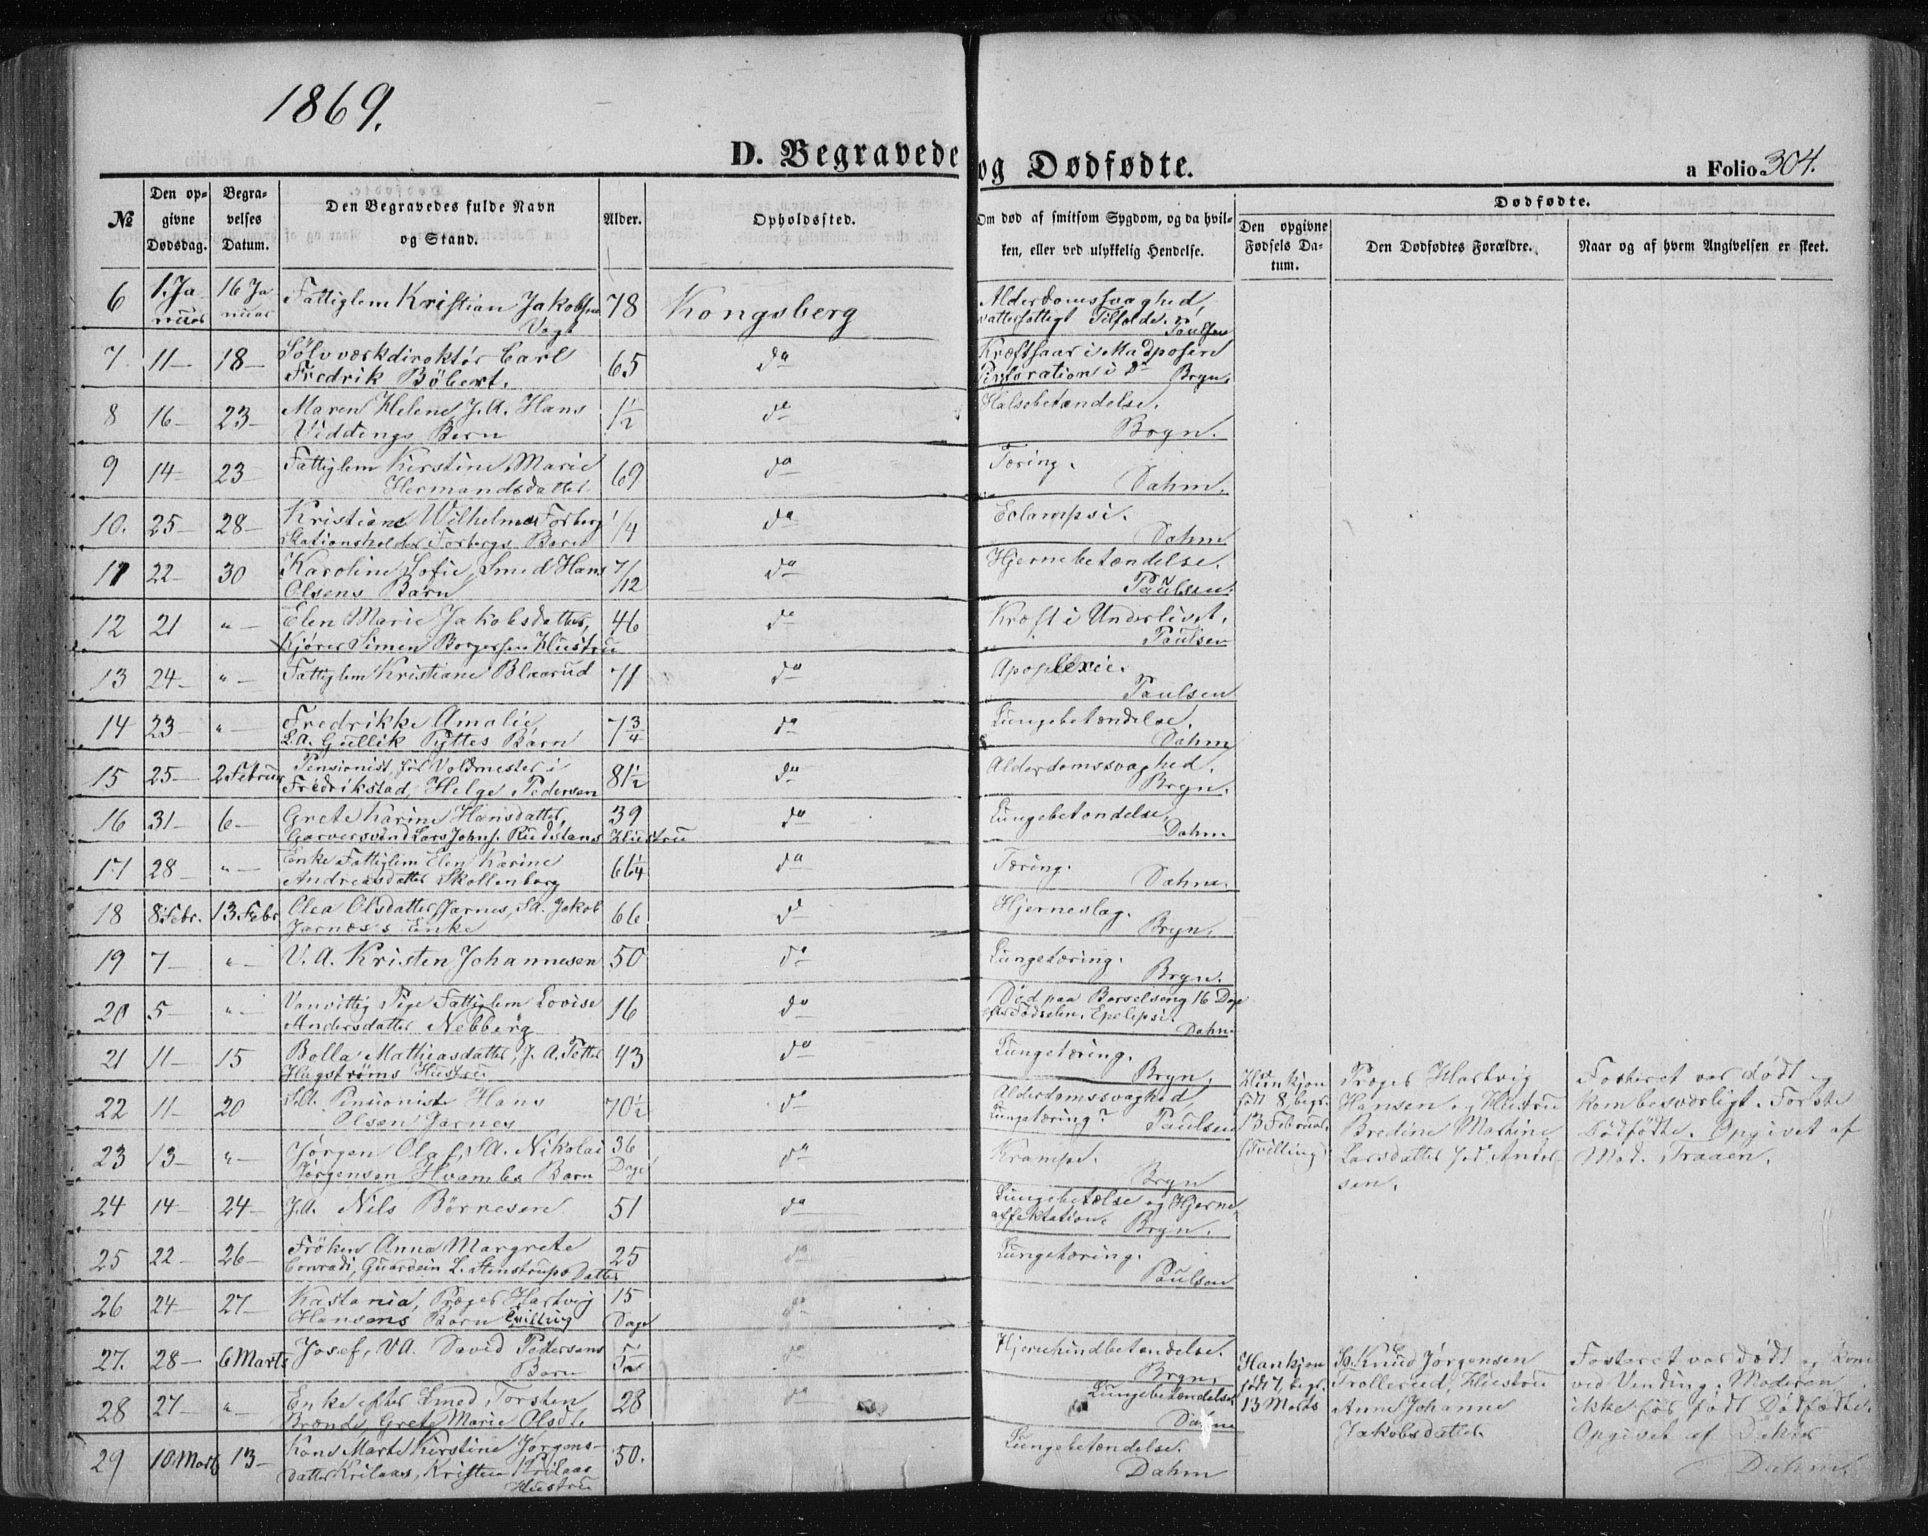 1869.
D. Begravede og Dødfødte.
a Folio 304.
№
Den opgivne Dødsdag.
Begravelses Datum.
Den Begravedes fulde Navn og Stand.
Alder.
Opholdssted.
Om død af smitsom Sygdom, og da hvilken, eller ved ulykkelig Hendelse.
Dødfødte.
Den opgivne Fødsels Datum.
Den Dødfødtes Forældre.
Naar og af hvem Angivelsen er skeet.
6 1. Januar 16 Januar Fattiglem Kristian Jakobsen Vogt 78 Kongsberg Alderdomssvaghed, vattersottigt Tilfælde. Paulsen
7. 11 – 18 – Sølvværksdirektør Carl Fredrik Böbert. 65 do Kræftsaar i Madposen Perforation i do Bryn.
8 16 – 23 – Maren Helene, J.A. Hans Viddings Barn 1½ do Halsbetændelse. Bryn.
9 14 – 23 – Fattiglem Kirstine Marie Hermandsdatter 69 do Tæring. Dahm.
10. 25 – 28 – Kristiane Wilhelmine Forberg Stationsholder Forbergs Barn 1/4 do Eclampsi. Dahm
11 22 – 30 Karoline Sofie, Smed Hans Olsens Barn 7/12 do Hjernebetændelse. Paulsen.
12 21 " – Elen Marie Jakobsdatter, Kjører Simen Borgersen Hustru 46 do Kræft i Underlivet. Paulsen
13 24 – " – Fattiglem Kristiane Blaarud 71 do Apoplexie. Paulsen
14 23 – " – Fredrikke Amalie S.A. Gullik Pyttes Barn 7¾ do Lungebetændelse. Dahm
15 25 – 2 Februar Pensionist, før Voldmester i Fredrikstad, Helge Pedersen 81½ do Alderdomssvaghed. Bryn.
16 31 – 6 – Grete Karine Hansdatter, Garversvend Lars Johns. Rudslans Hustru 39 do Lungebetændelse, Dahm.
17 28 – " – Enke Fattiglem Elen Karine Andreasdatter Skollenborg 66¼ do Tæring. Dahm.
18 8 Febr. 13 Febr Olea Olsdatter Jarnes, S.A. Jakob Jarnæs's Enke 66 do Hjerneslag. Bryn.
19 7 – " – V.A. Kristen Johannesen 50 do Lungetæring. Bryn.
20 5 – " – Vanvittig Pige Fattiglem Lovise Andersdatter Nebberg 16 do Død paa Barselseng 16 Dage efter Fødselen. Epelipsi. Dahm
21 11 – 15 Bolla Mathiasdatter, J.A. Petter Hugstrøms Hustru 43 do Lungetæring. Bryn.
22 11 – 20 Pensionist Hans Olsen Jarnes 70½ do Alderdomssvaghed Lungetæring? Paulsen
23 13 – " – Jørgen Olaf, S.A. Nikolai Jørgensen Hvambs Barn 36 Dage do Krampe. Bryn
24 14 – 24 – J.A. Nils Børnesen 51 do Lungebetælse og Hjerneaffektation. Bryn.
25 22 – 26 – Frøken Anna Margrete Conradi, Guardein L. Stenstrups Datter 25 do Lungetæring. Paulsen
26 24 – 27 – Kastania, Præger Hartvig Hansens Barn Tvilling 15 Dage do
27. 28 – 6 Marts Josef, V.A. David Pedersens Barn do Hjernehindbetændelse. Bryn.
28 27 – " Enke efter Smed Torsten Brænde, Grete Marie Olsdt. 28 do Lungebetændelse Dahm
29 10 Marts 13 – Kone Marte Kirstine Jørgensdatter Krilaas, Kristen Krilaas Hustru 50. Lungebetændelse. Dahm
Hunkjøn født 8, begr. 13 Februar. (Tvilling)
Præger Hartvig Hansen og Hustru Bredine Martine Larsdatter Andersen.
Fosteret var dødt og kom besværligt. Første Dødfødte. Opgivet af Mad. Traaen.
Hankjøn født 7, begr. 13 Marts
Knud Jørgensen Trollerud, Hustru Anne Johanne Jakobsdatter
Fosteret var dødt og kom ved Vending. Moderen ikke før født Dødfødte. Opgivet af Doktor Dahm.